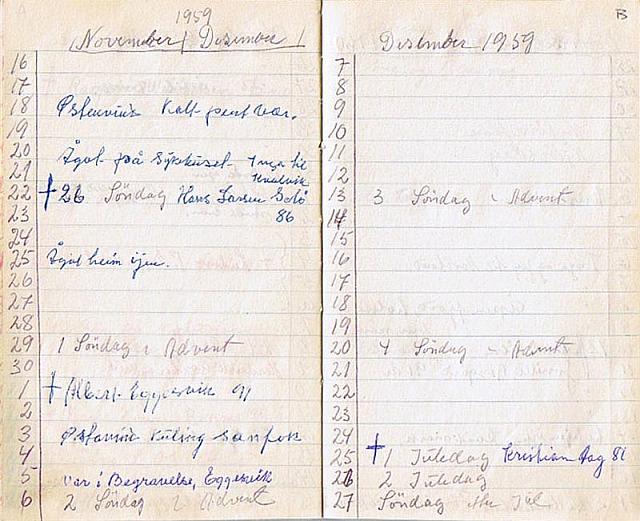 1959
November / Desember
16
17
18 Østavind Kalt pent Vær.
19
20
21 Ågot på Sykehuset Inga til
22 † 26 Söndag Hans Larsen Solö
23 86
24
25 Ågot heim ijen.
26
27
28
29 1 Söndag i Advent
30
1 † Albert Eggesvik 91
2
3 Østavind Kuling
4
5 var i Begravelse, Eggesvik
6 2 Söndag i Advent
B
Desember 1959
7
8
9
10
11
12
13 3 Söndag i Advent
14
15
16
17
18
19
20 4 Söndag i Advent
21
22
23
24
25 † 1 Juledag Kristian Aag 81
26 2 Juledag
27 Söndag Jul